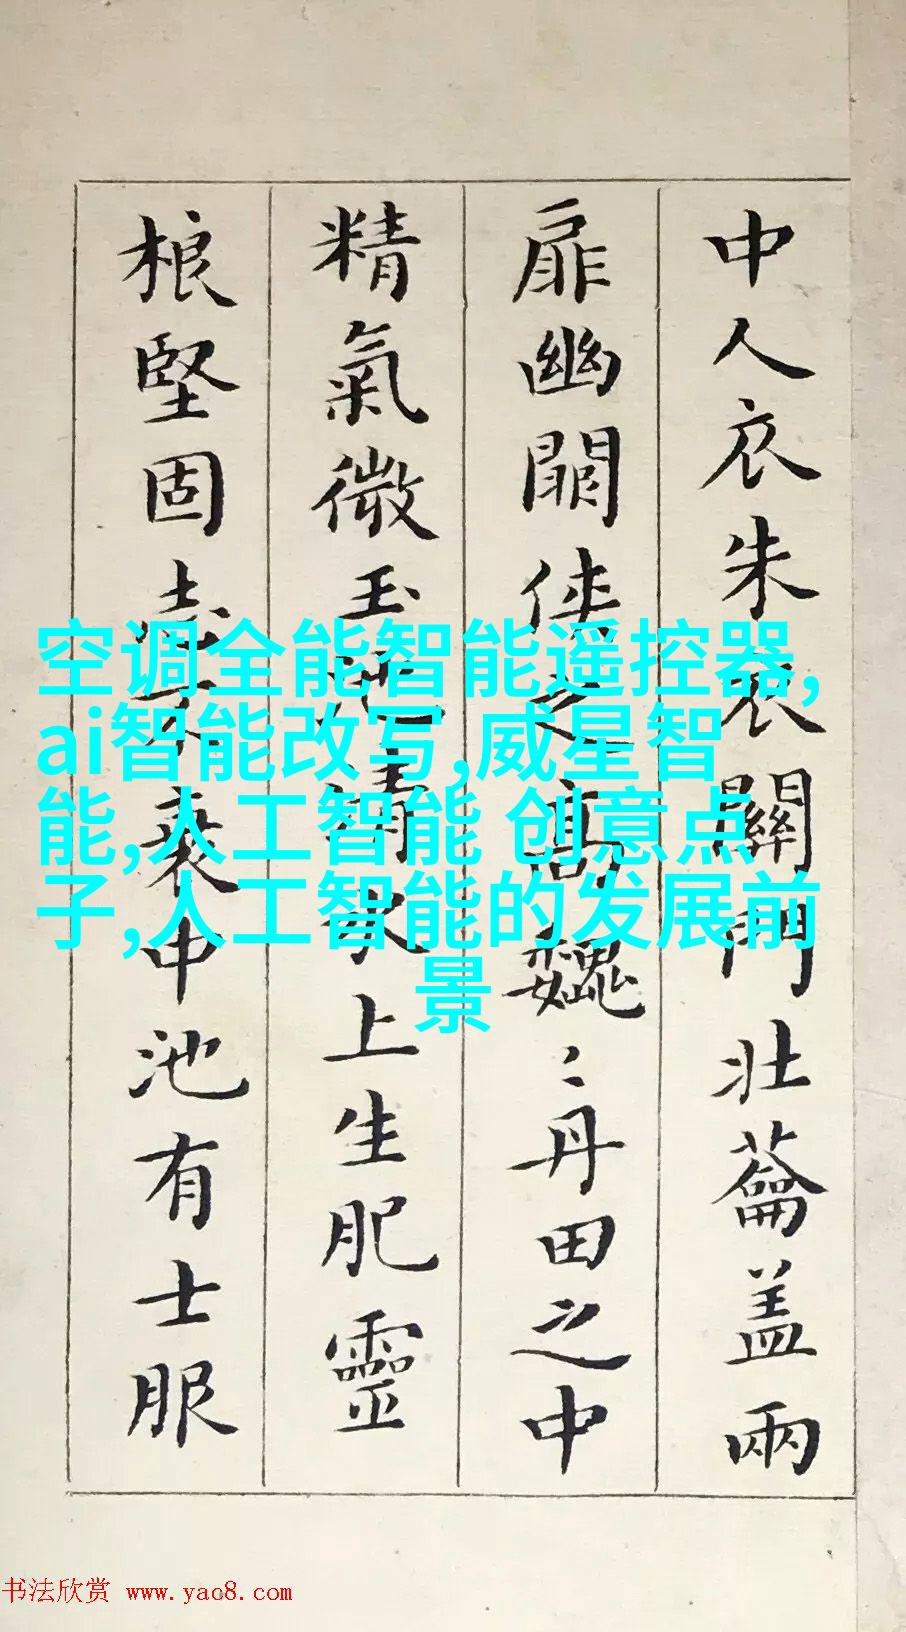 中人衣朱衣關門壯蘥盖兩
扉幽闕侠之高巍〻丹田之中
精氣微玉池清水上生肥靈
根堅固志不衰中池有士服
空调全能智能遥控器,
ai智能改写,威星智
能,人工智能 创意点
子,人工智能的发展前
景
书法欣赏 www.yac8.com